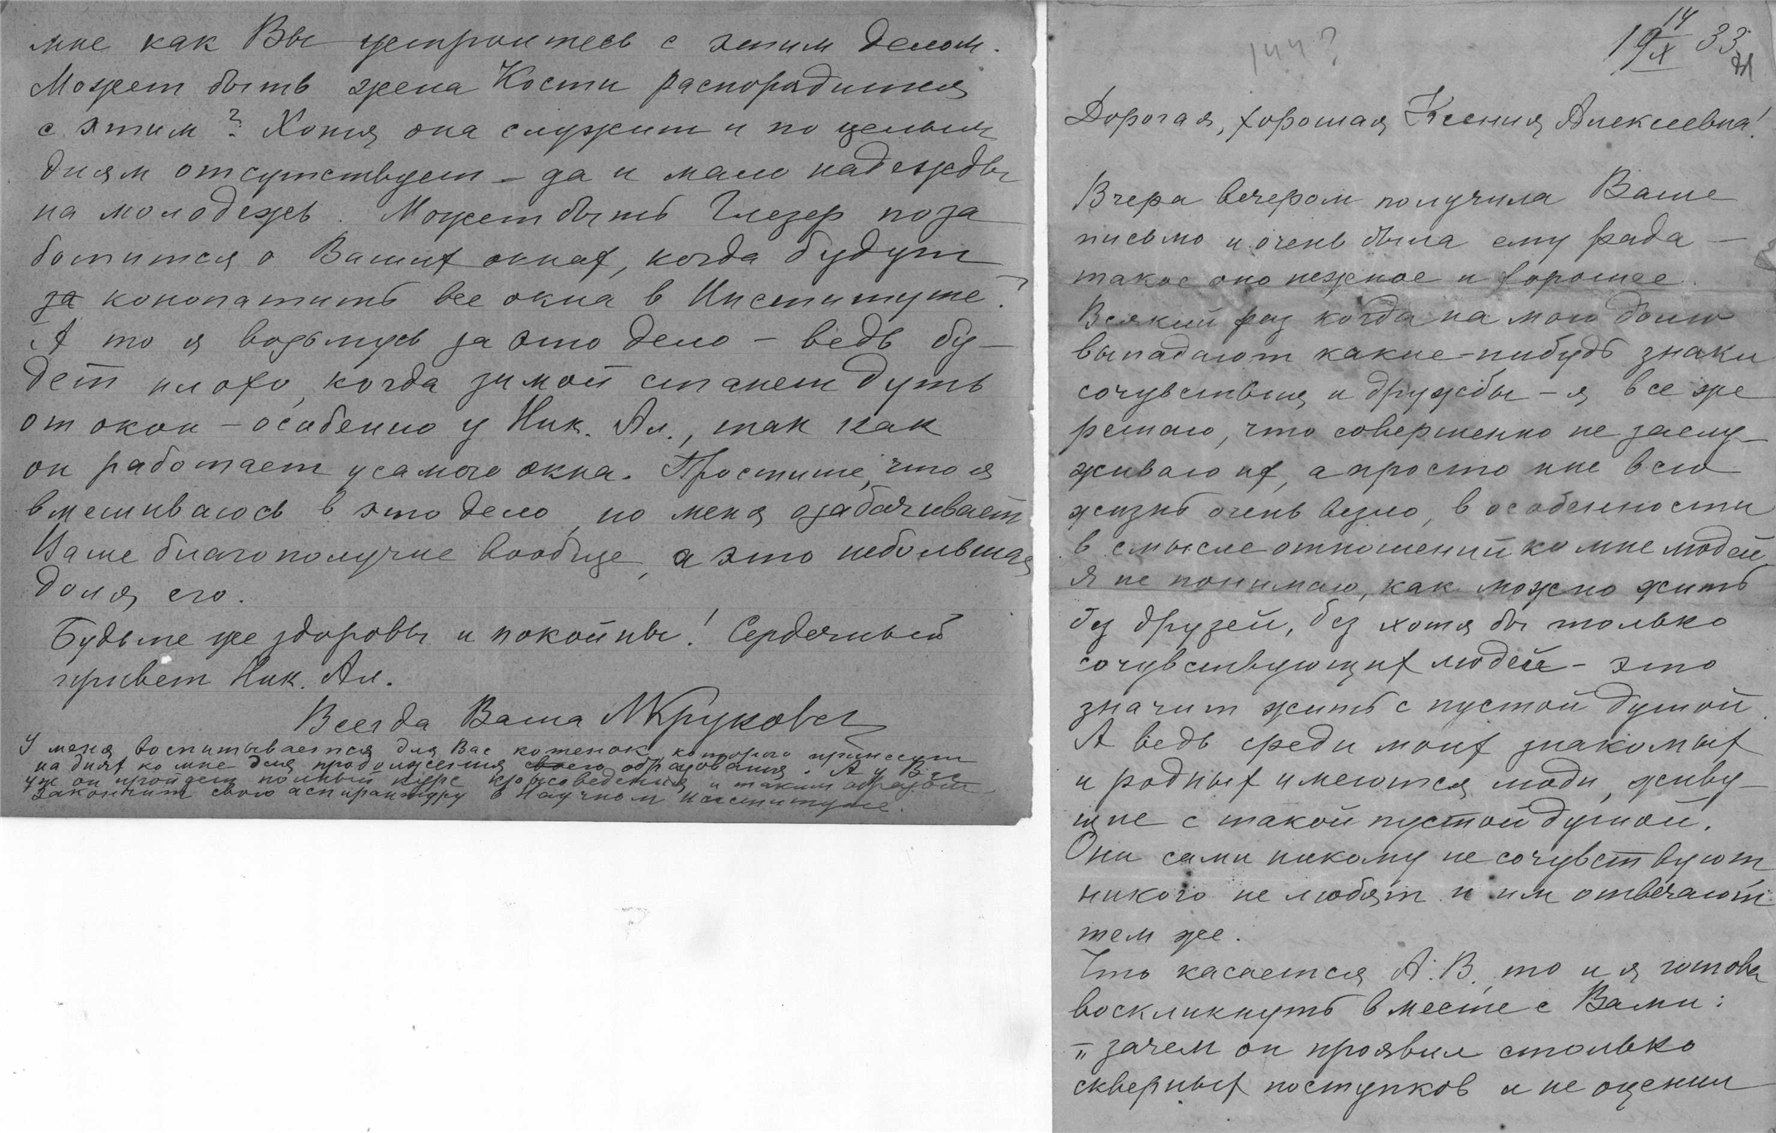 мне как Вы устроитесь с этим делом.
Может быть жена Кости распорядится
с этим? Хотя она служит и по целым
дням отсутствует – да и мало надежды
на молодежь. Может быть Глезер поза
ботится о Ваших окнах, когда будут
за конопатить все окна в Институте?
А то я возьмусь за это дело – ведь бу–
дет плохо, когда зимой станет дуть
от окон – особенно у Ник. Ал., так как
он работает у самого окна. Простите, что я
вмешиваюсь в это дело, но меня озабочивает
Ваше благополучие вообще, а это небольшая
доля его.
Будьте же здоровы и покойны! Сердечный
привет Ник. Ал.
Всегда Ваша
У меня воспитывается для Вас котенок, которого принесут
на днях ко мне для продолжения своего образования. А у Вас
уже он пройдет полный курс крысоведения и таким образом
закончит свою аспирантуру в Научном Институте.
144?
19 14/X 33
Дорогая, хорошая Ксения Алексеевна!
Вчера вечером получила Ваше
письмо и очень была ему рада –
такое оно нежное и хорошее.
Всякий раз когда на мою долю
выпадают какие-нибудь знаки
сочувствия и дружбы – я все же
решаю, что совершенно не заслу–
живаю их, а просто мне всю
жизнь очень везло, в особенности
в смысле отношений ко мне людей
Я не понимаю, как можно жить
без друзей, без хотя бы только
сочувствующих людей – это
значит жить с пустой душой.
А ведь среди моих знакомых
и родных имеются люди, живу–
щие с такой пустой душой.
Они сами никому не сочувствуют
никого не любят и им отвечают
тем же.
Что касается А. В., то и я готова
воскликнуть вместе с Вами:
„зачем он проявил столько
скверных поступков и не оценил